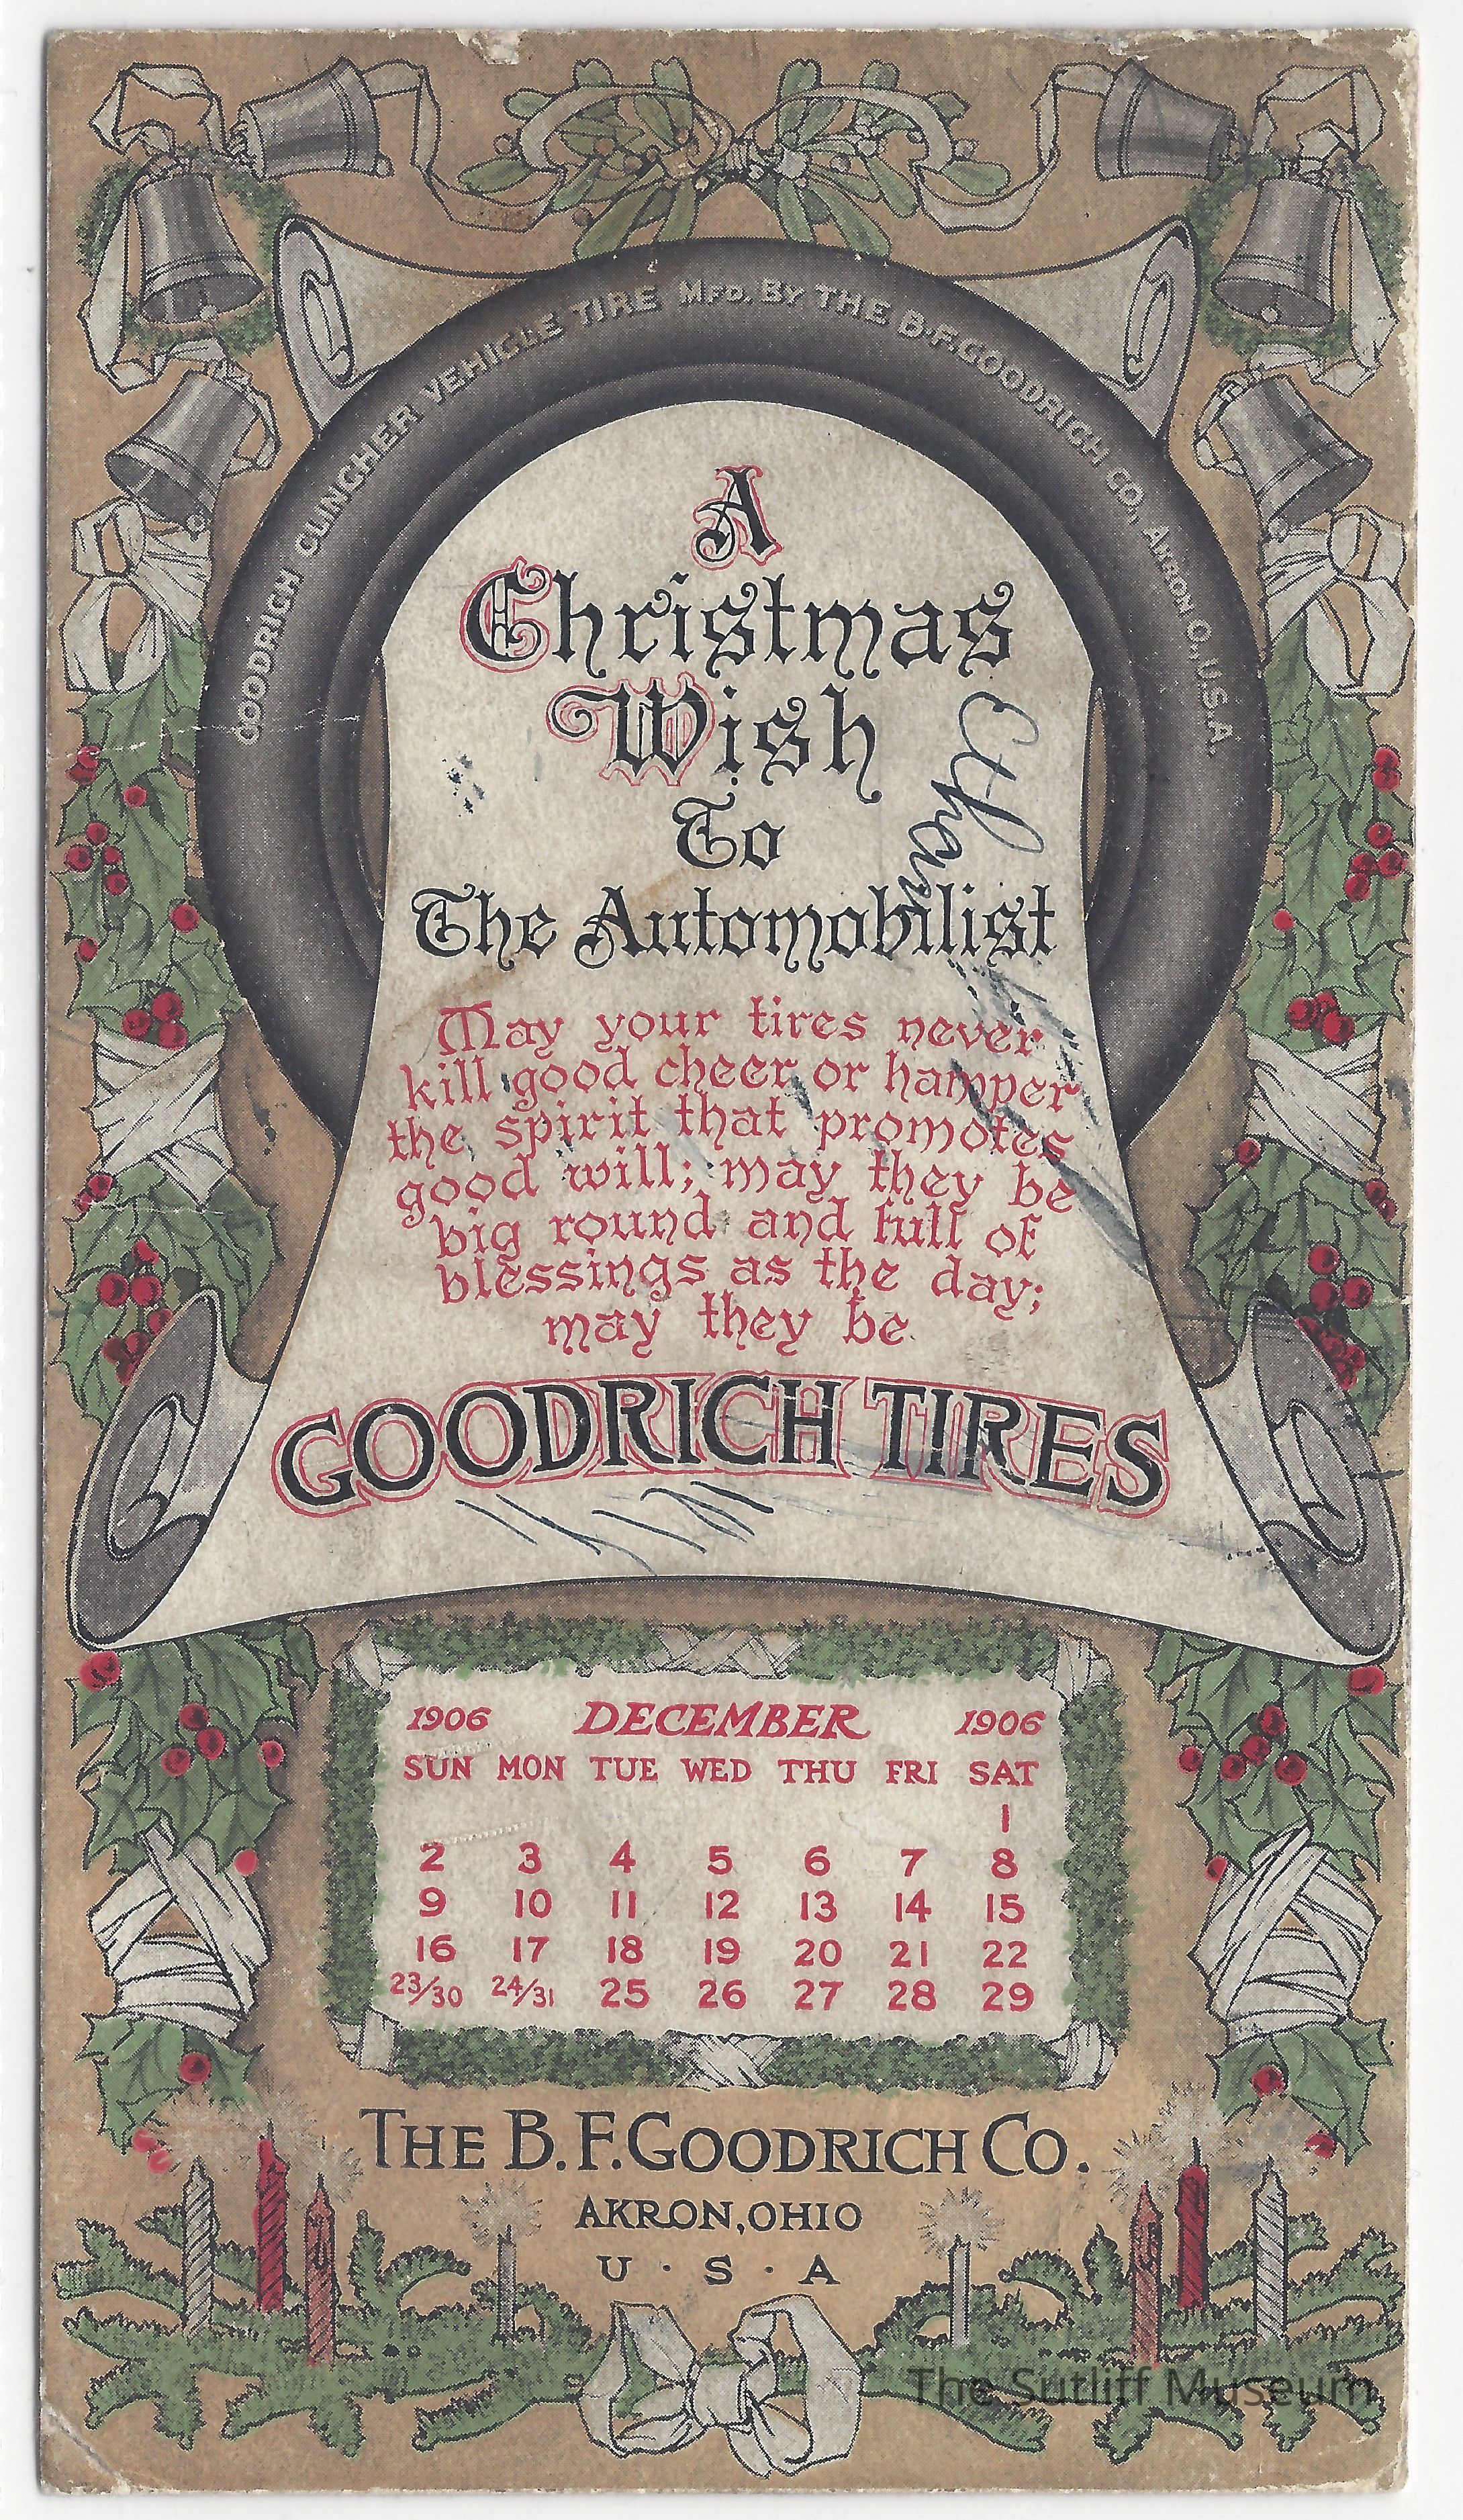 GOODRICH CLINCHER VEHICLE TIRE MFD. BY THE B.F. GOODRICH CO., AKRON, O., U.S.A.
A
Christmas
Wish
To
The Automobilist
Ethan
May your tires never
kill good cheer or hamper
the spirit that promotes
good will; may they be
big round and full of
blessings as the day;
may they be
GOODRICH TIRES
1906 DECEMBER 1906
SUN MON TUE WED THU FRI SAT
1
2 3 4 5 6 7 8
9 10 11 12 13 14 15
16 17 18 19 20 21 22
23/30 24/31 25 26 27 28 29
THE B.F. GOODRICH CO.
AKRON, OHIO
U · S · A
The Sutliff Museum